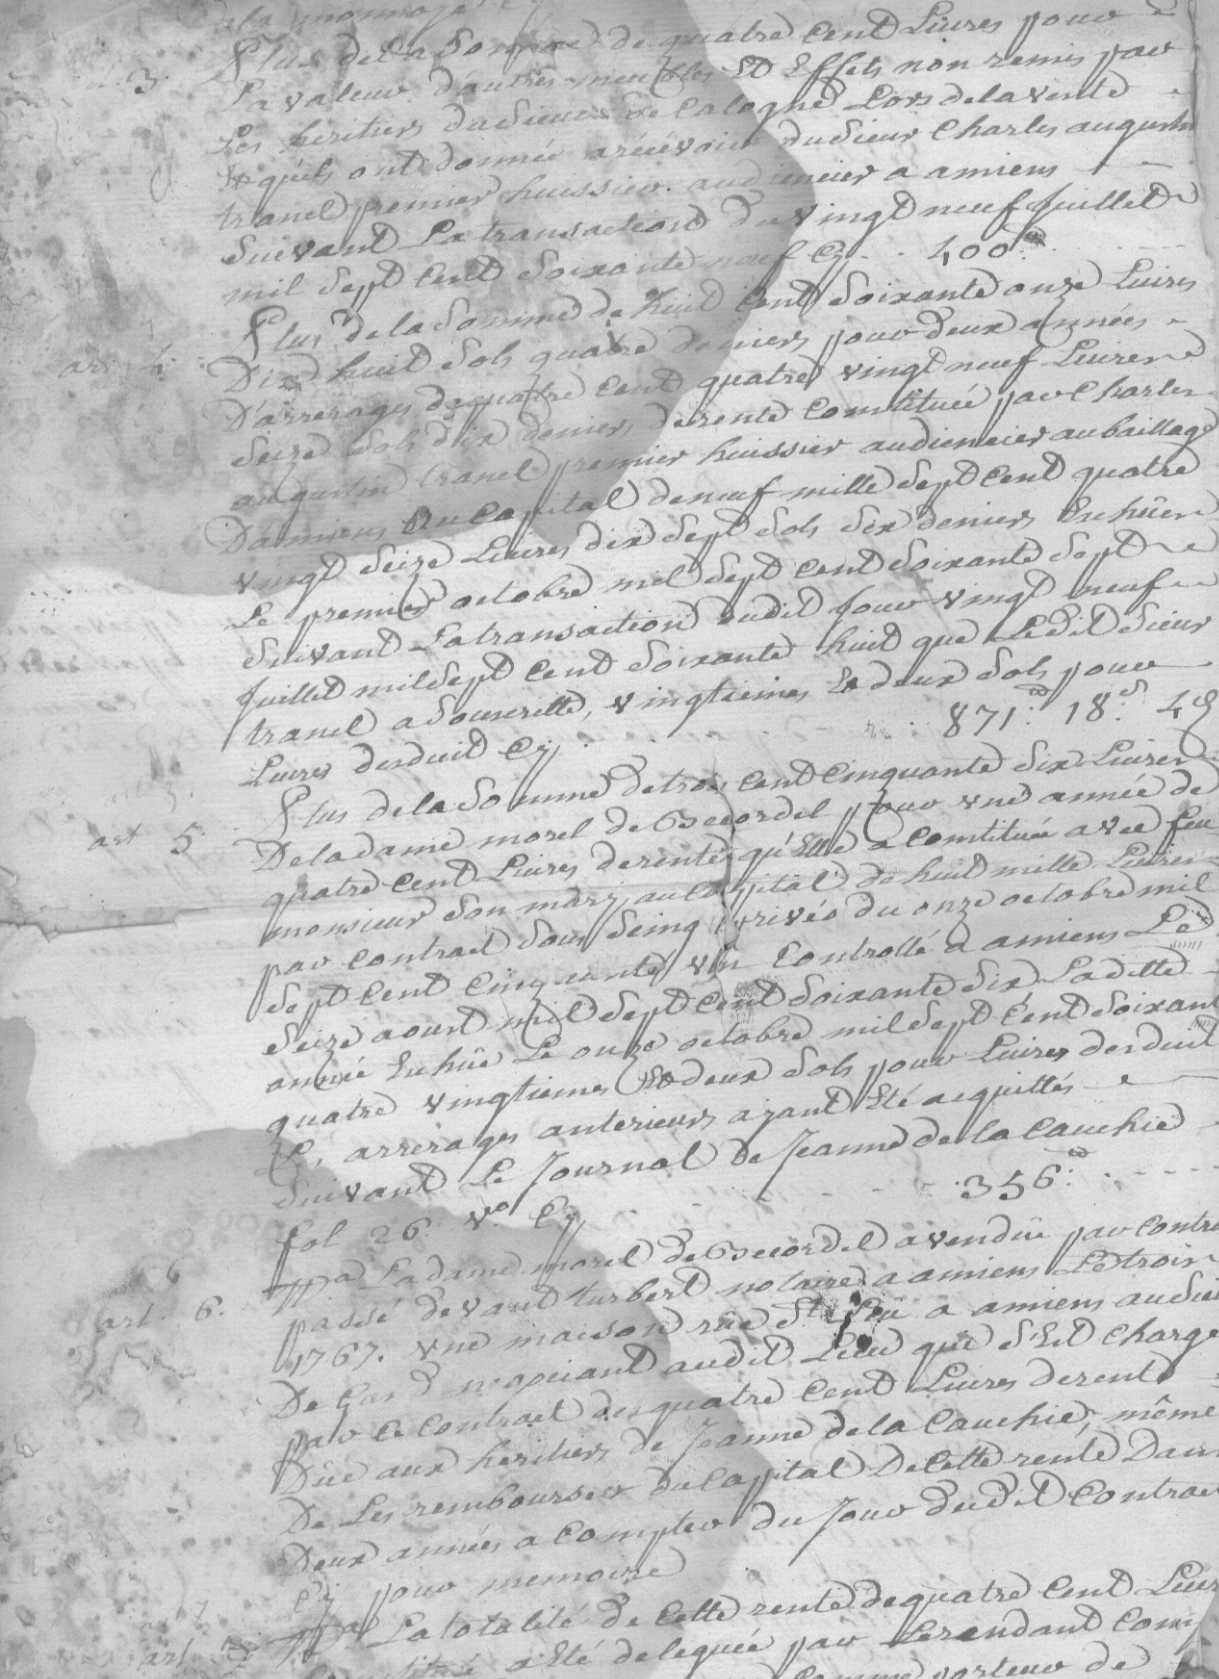 de la monnoye Cy
3. Plus de la Somme de quatre cent Livres pour
la valeur d'autres meubles Et Effets non remis par
Les heritiers du Sieur de Calogne Lors de la vente
Et qu'ils ont donnée a recevoir du Sieur Charles augustin
tranel premier huissier audiencier a amiens
Suivant La transaction du vingt neuf Juillet
mil Sept Cent Soixante neuf Cy . . 400#
art 4. Plus de la Somme de huit Cent Soixante onze Livres
Dix huit Sols quatre deniers pour deux années
D'arrerages de quatre Cent quatre vingt neuf Livres
Seize Sols dix deniers de rente Constituée par Charles
augustin tranel premier huissier audiencier au baillage
D'amiens au Capital de neuf mille Sept Cent quatre
vingt Seize Livres dix Sept Sols Six deniers Echûes
Le premier octobre mil Sept Cent Soixante Sept
Suivant La transaction dudit Jour vingt neuf
Juillet mil Sept Cent Soixante huit que Ledit Sieur
tranel a Souscritte, vingtiemes Et deux Sols pour
Livres deduit Cy . . . 871# 18s 4d
art 5. Plus de la Somme de trois Cent Cinquante Six Livres
De la dame morel de Becordel pour une année de
quatre Cent Livres de rente qu'Elle a Constituée avec feu
monsieur Son mary au Capital de huit mille Livres
par Contract Sous Seing privés du onze octobre mil
Sept Cent Cinquante un Controllé a amiens Le
Seize aoust mil Sept Cent Soixante Six Laditte
année Echûe Le onze octobre mil Sept Cent Soixante
quatre vingtiemes Et deux Sols pour Livres deduit
Les arrerages anterieurs ayant Eté acquittés
Suivant Le Journal de Jeanne de la Cauchie
fol 26 vo Cy . . . 356#
art. 6. La dame morel de Becordel a vendüe par Contract
passé devant turbert notaire a amiens Le trois
1767. une maison rüe St Leu a amiens au Sieur
De Gand negociant audit Lieu que S'Est Chargé
par Ce Contract des quatre Cent Livres de rente
Düe aux heritiers de Jeanne de la Cauchie, même
De Les rembourser du Capital De Cette rente Dans
Deux années a Compter du Jour dudit Contract
Cy pour memoire
art 7. La totalité de Cette rente de quatre Cent Livres
a Eté deleguée par Le rendant Compte
comme porteur de